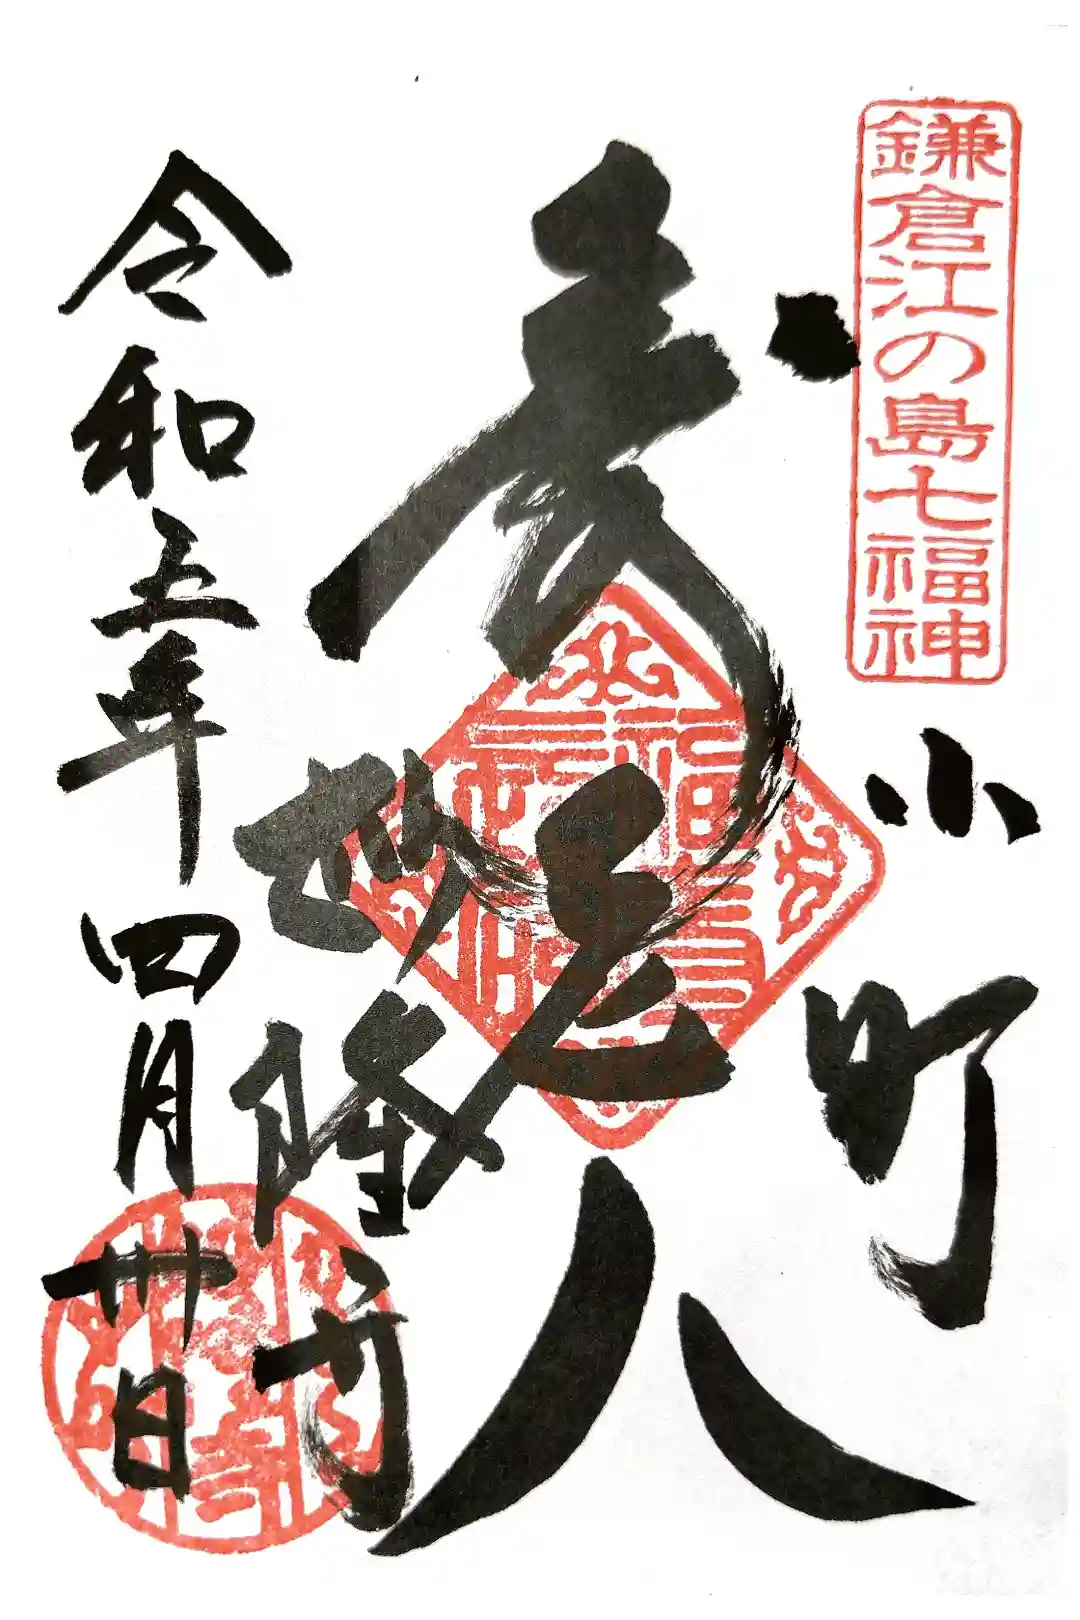 鎌倉江の島七福神
小町
寿老人
妙隆寺
令和五年
四月卅日